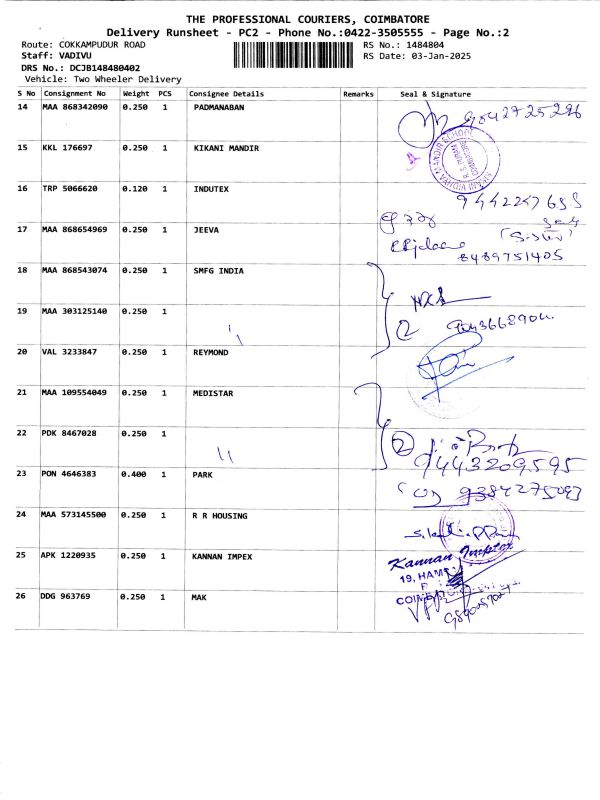 THE PROFESSIONAL COURIERS, COIMBATORE
Delivery Runsheet - PC2 - Phone No.:0422-3505555 - Page No.:2
Route: COKKAMPUDUR ROAD
RS No.: 1484804
Staff: VADIVU
RS Date: 03-Jan-2025
DRS No.: DCJB148480402
Vehicle: Two Wheeler Delivery
S No Consignment No Weight PCS Consignee Details Remarks Seal & Signature
14 MAA 868342090 0.250 1 PADMANABAN
9842725296
15 KKL 176697 0.250 1 KIKANI MANDIR
16 TRP 5066620 0.120 1 INDUTEX
9442247655
17 MAA 868654969 0.250 1 JEEVA
(Sister)
8489751405
18 MAA 868543074 0.250 1 SMFG INDIA
19 MAA 303125140 0.250 1 "
2
20 VAL 3233847 0.250 1 REYMOND
21 MAA 109554049 0.250 1 MEDISTAR
22 PDK 8467028 0.250 1 "
2
9443209595
23 PON 4646383 0.400 1 PARK
9384275093
24 MAA 573145500 0.250 1 R R HOUSING
25 APK 1220935 0.250 1 KANNAN IMPEX
Kannan Impex
26 DDG 963769 0.250 1 MAK